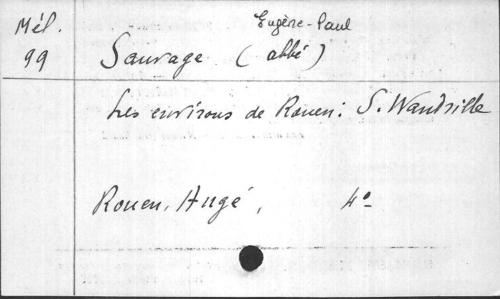 Mél.
99
Eugène-Paul
Sauvage (abbé)
Les environs de Rouen : S. Wandrille
Rouen, Augé, 4°